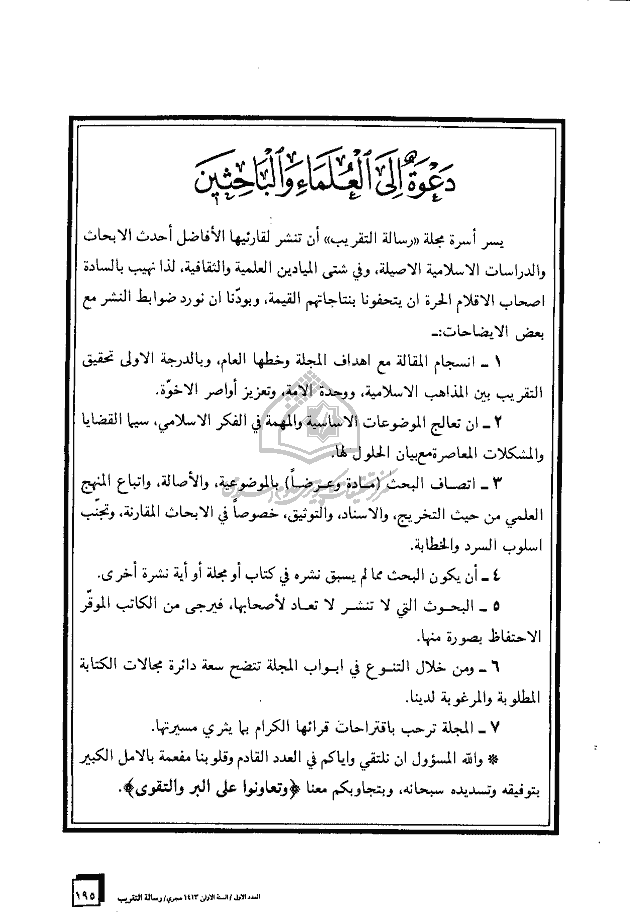 دَعْوَةٌ إِلَى الْعُلَمَاءِ وَالْبَاحِثِينَ
يسر أسرة مجلة «رسالة التقريب» أن تنشر لقارئيها الأفاضل أحدث الابحاث
والدراسات الاسلامية الاصيلة، وفي شتى الميادين العلمية والثقافية، لذا نهيب بالسادة
اصحاب الاقلام الحرة ان يتحفونا بنتاجاتهم القيمة، وبودّنا ان نورد ضوابط النشر مع
بعض الايضاحات:ـ
١ ـ انسجام المقالة مع اهداف المجلة وخطها العام، وبالدرجة الاولى تحقيق
التقريب بين المذاهب الاسلامية، ووحدة الامة، وتعزيز أواصر الاخوّة.
٢ ـ ان تعالج الموضوعات الاساسية والمهمة في الفكر الاسلامي، سيما القضايا
والمشكلات المعاصرة مع بيان الحلول لها.
٣ ـ اتصاف البحث (مادة وعرضاً) بالموضوعية، والأصالة، واتباع المنهج
العلمي من حيث التخريج، والاسناد، والتوثيق، خصوصاً في الابحاث المقارنة، وتجنّب
اسلوب السرد والخطابة.
٤ ـ أن يكون البحث مما لم يسبق نشره في كتاب أو مجلة أو أية نشرة أخرى.
٥ ـ البحوث التي لا تنشر لا تعاد لأصحابها، فيرجى من الكاتب الموقّر
الاحتفاظ بصورة منها.
٦ ـ ومن خلال التنوع في ابواب المجلة تتضح سعة دائرة مجالات الكتابة
المطلوبة والمرغوبة لدينا.
٧ ـ المجلة ترحب باقتراحات قرائها الكرام بما يثري مسيرتها.
* والله المسؤول ان نلتقي واياكم في العدد القادم وقلوبنا مفعمة بالامل الكبير
بتوفيقه وتسديده سبحانه، وبتجاوبكم معنا ﴿وتعاونوا على البر والتقوى﴾.
العدد الاول / السنة الاولى ١٤١٣ هجري / رسالة التقريب
١٩٥